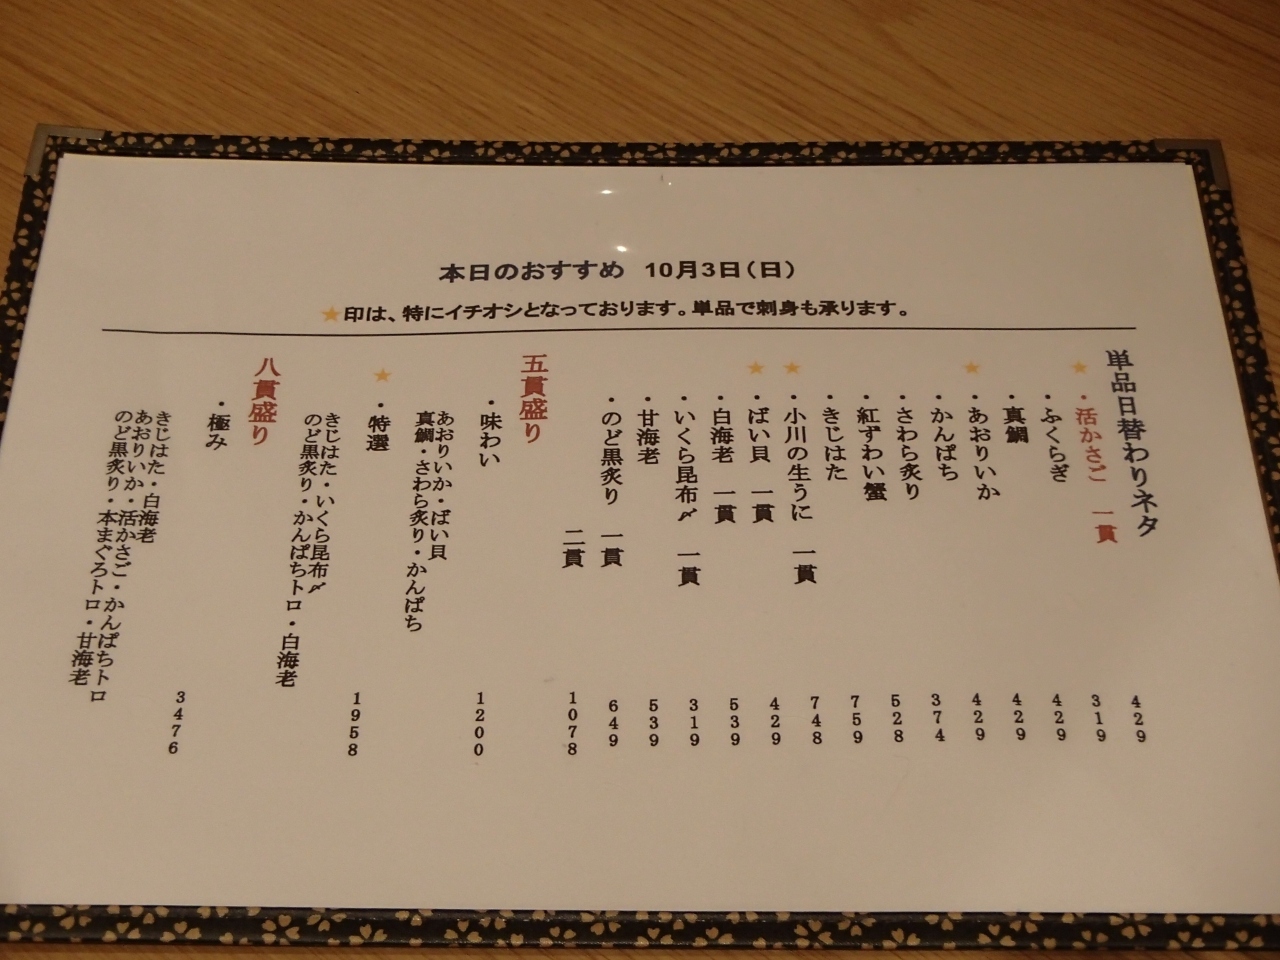 本日のおすすめ 10月3日(日)
★印は、特にイチオシとなっております。単品で刺身も承ります。
単品日替わりネタ
★・活かさご 一貫 429
・ふくらぎ 319
・真鯛 429
★・あおりいか 429
・かんぱち 429
・さわら炙り 374
・紅ずわい蟹 528
・きじはた 759
★・小川の生うに 一貫 748
★・ばい貝 一貫 429
・白海老 一貫 539
・いくら昆布〆 一貫 319
・甘海老 539
・のど黒炙り 一貫 649
二貫 1078
五貫盛り
・味わい 1200
あおりいか・ばい貝
真鯛・さわら炙り・かんぱち
★・特選 1958
きじはた・いくら昆布〆
のど黒炙り・かんぱちトロ・白海老
八貫盛り
・極み 3476
きじはた・白海老
あおりいか・活かさご・かんぱちトロ
のど黒炙り・本まぐろトロ・甘海老